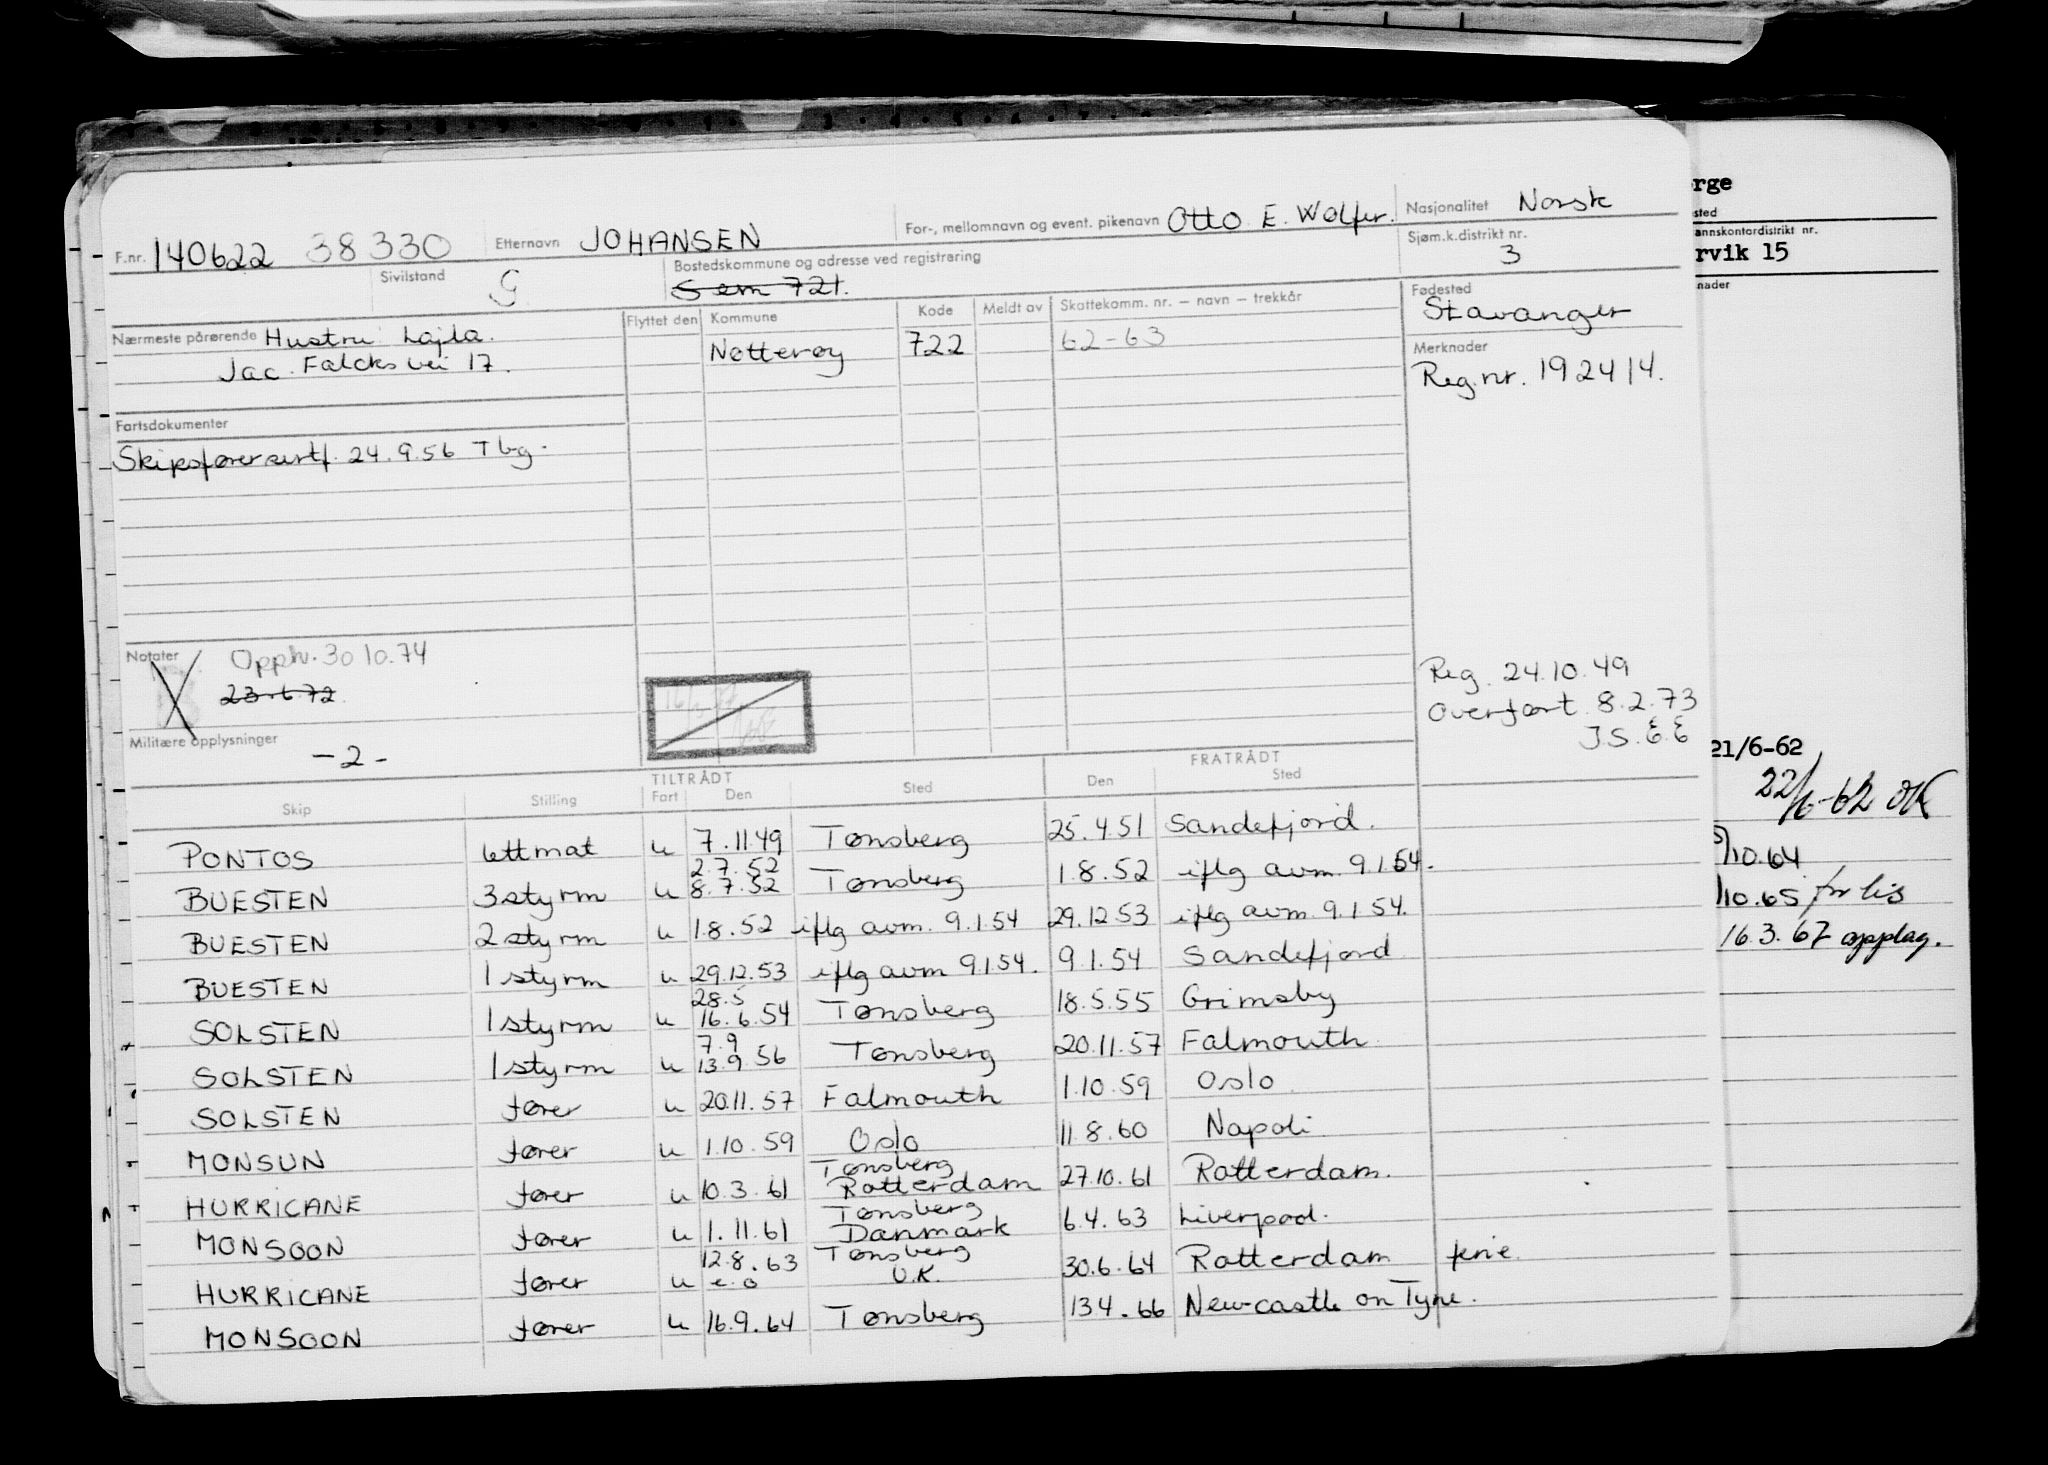 F.nr. 140622 38330 Etternavn JOHANSEN For-, mellomnavn og event. pikenavn Otto E. Wølfer. Nasjonalitet Norsk
Sivilstand G Bostedskommune og adresse ved registrering Sem 721. Sjøm.k.distrikt nr. 3
Nærmeste pårørende Hustru Lajla. Flyttet den Kommune Kode Meldt av Skattekomm. nr. – navn – trekkår Fødested Stavanger
Jac. Falcks vei 17. Nøtterøy 722 62-63 Merknader
Reg.nr. 192414.
Fartsdokumenter
Skipsførersertf. 24.9.56 Tbg.
Notater Opph. 30 10.74
23.6 72.
Reg. 24.10.49
Overført 8.2.73
J.S.E.E
Militære opplysninger
-2-
TILTRÅDT FRATRÅDT
Skip Stilling Fart Den Sted Den Sted
PONTOS lettmat u 7.11.49 Tønsberg 25.4.51 Sandefjord.
BUESTEN 3 styrm u 2.7.52 8.7.52 Tønsberg 1.8.52 iflg avm. 9.1.54.
BUESTEN 2 styrm u 1.8.52 iflg avm. 9.1.54 29.12.53 iflg avm. 9.1.54.
BUESTEN 1 styrm u 29.12.53 iflg avm 9.1.54. 9.1.54 Sandefjord
SOLSTEN 1 styrm u 28.5 16.6.54 Tønsberg 18.5.55 Grimsby
SOLSTEN 1 styrm u 7.9 13.9.56 Tønsberg 20.11.57 Falmouth
SOLSTEN fører u 20.11.57 Falmouth 1.10.59 Oslo
MONSUN fører u 1.10.59 Oslo 11.8.60 Napoli
HURRICANE fører u 10.3.61 Tønsberg Rotterdam 27.10.61 Rotterdam.
MONSOON fører u 1.11.61 Tønsberg Danmark 6.4.63 Liverpool.
HURRICANE fører u 12.8.63 e.o Tønsberg U.K. 30.6.64 Rotterdam ferie.
MONSOON fører u 16.9.64 Tønsberg 13.4.66 Newcastle on Tyne.
rge
sted
annskontordistrikt nr.
rvik 15
nader
21/6-62
22/6-62
/10.64
/10.65 for lis
16.3.67 opplag.